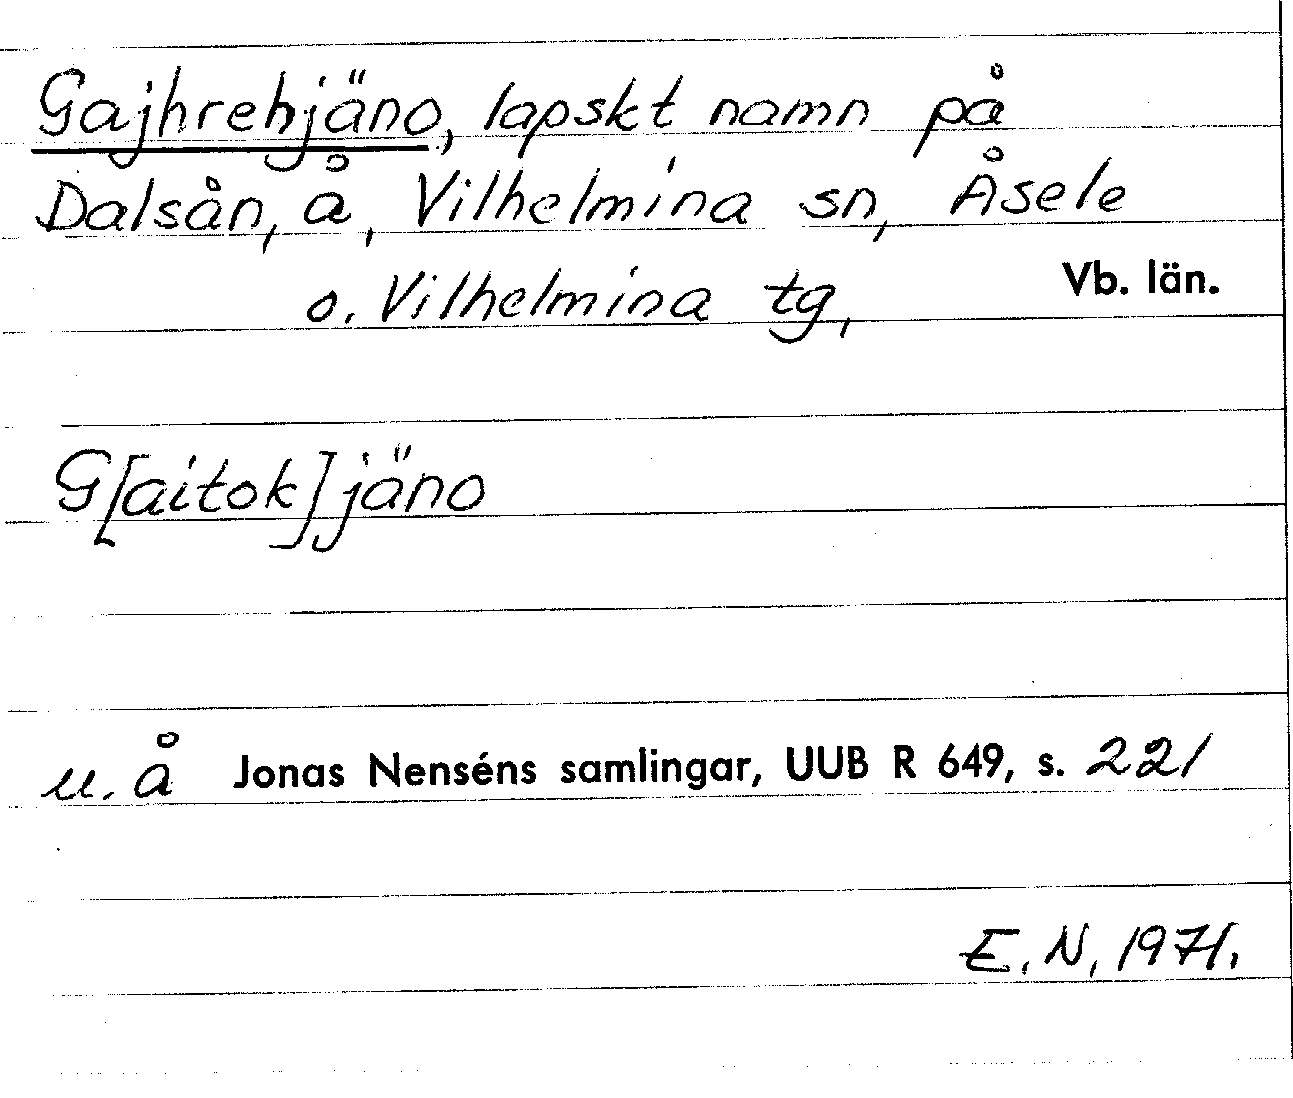 Gajhrehjäno, lapskt namn på
Dalsån, å, Vilhelmina sn, Åsele
o. Vilhelmina tg, Vb. län.
G[aitok]jäno
u. å Jonas Nenséns samlingar, UUB R 649, s. 221
E. N, 1971.